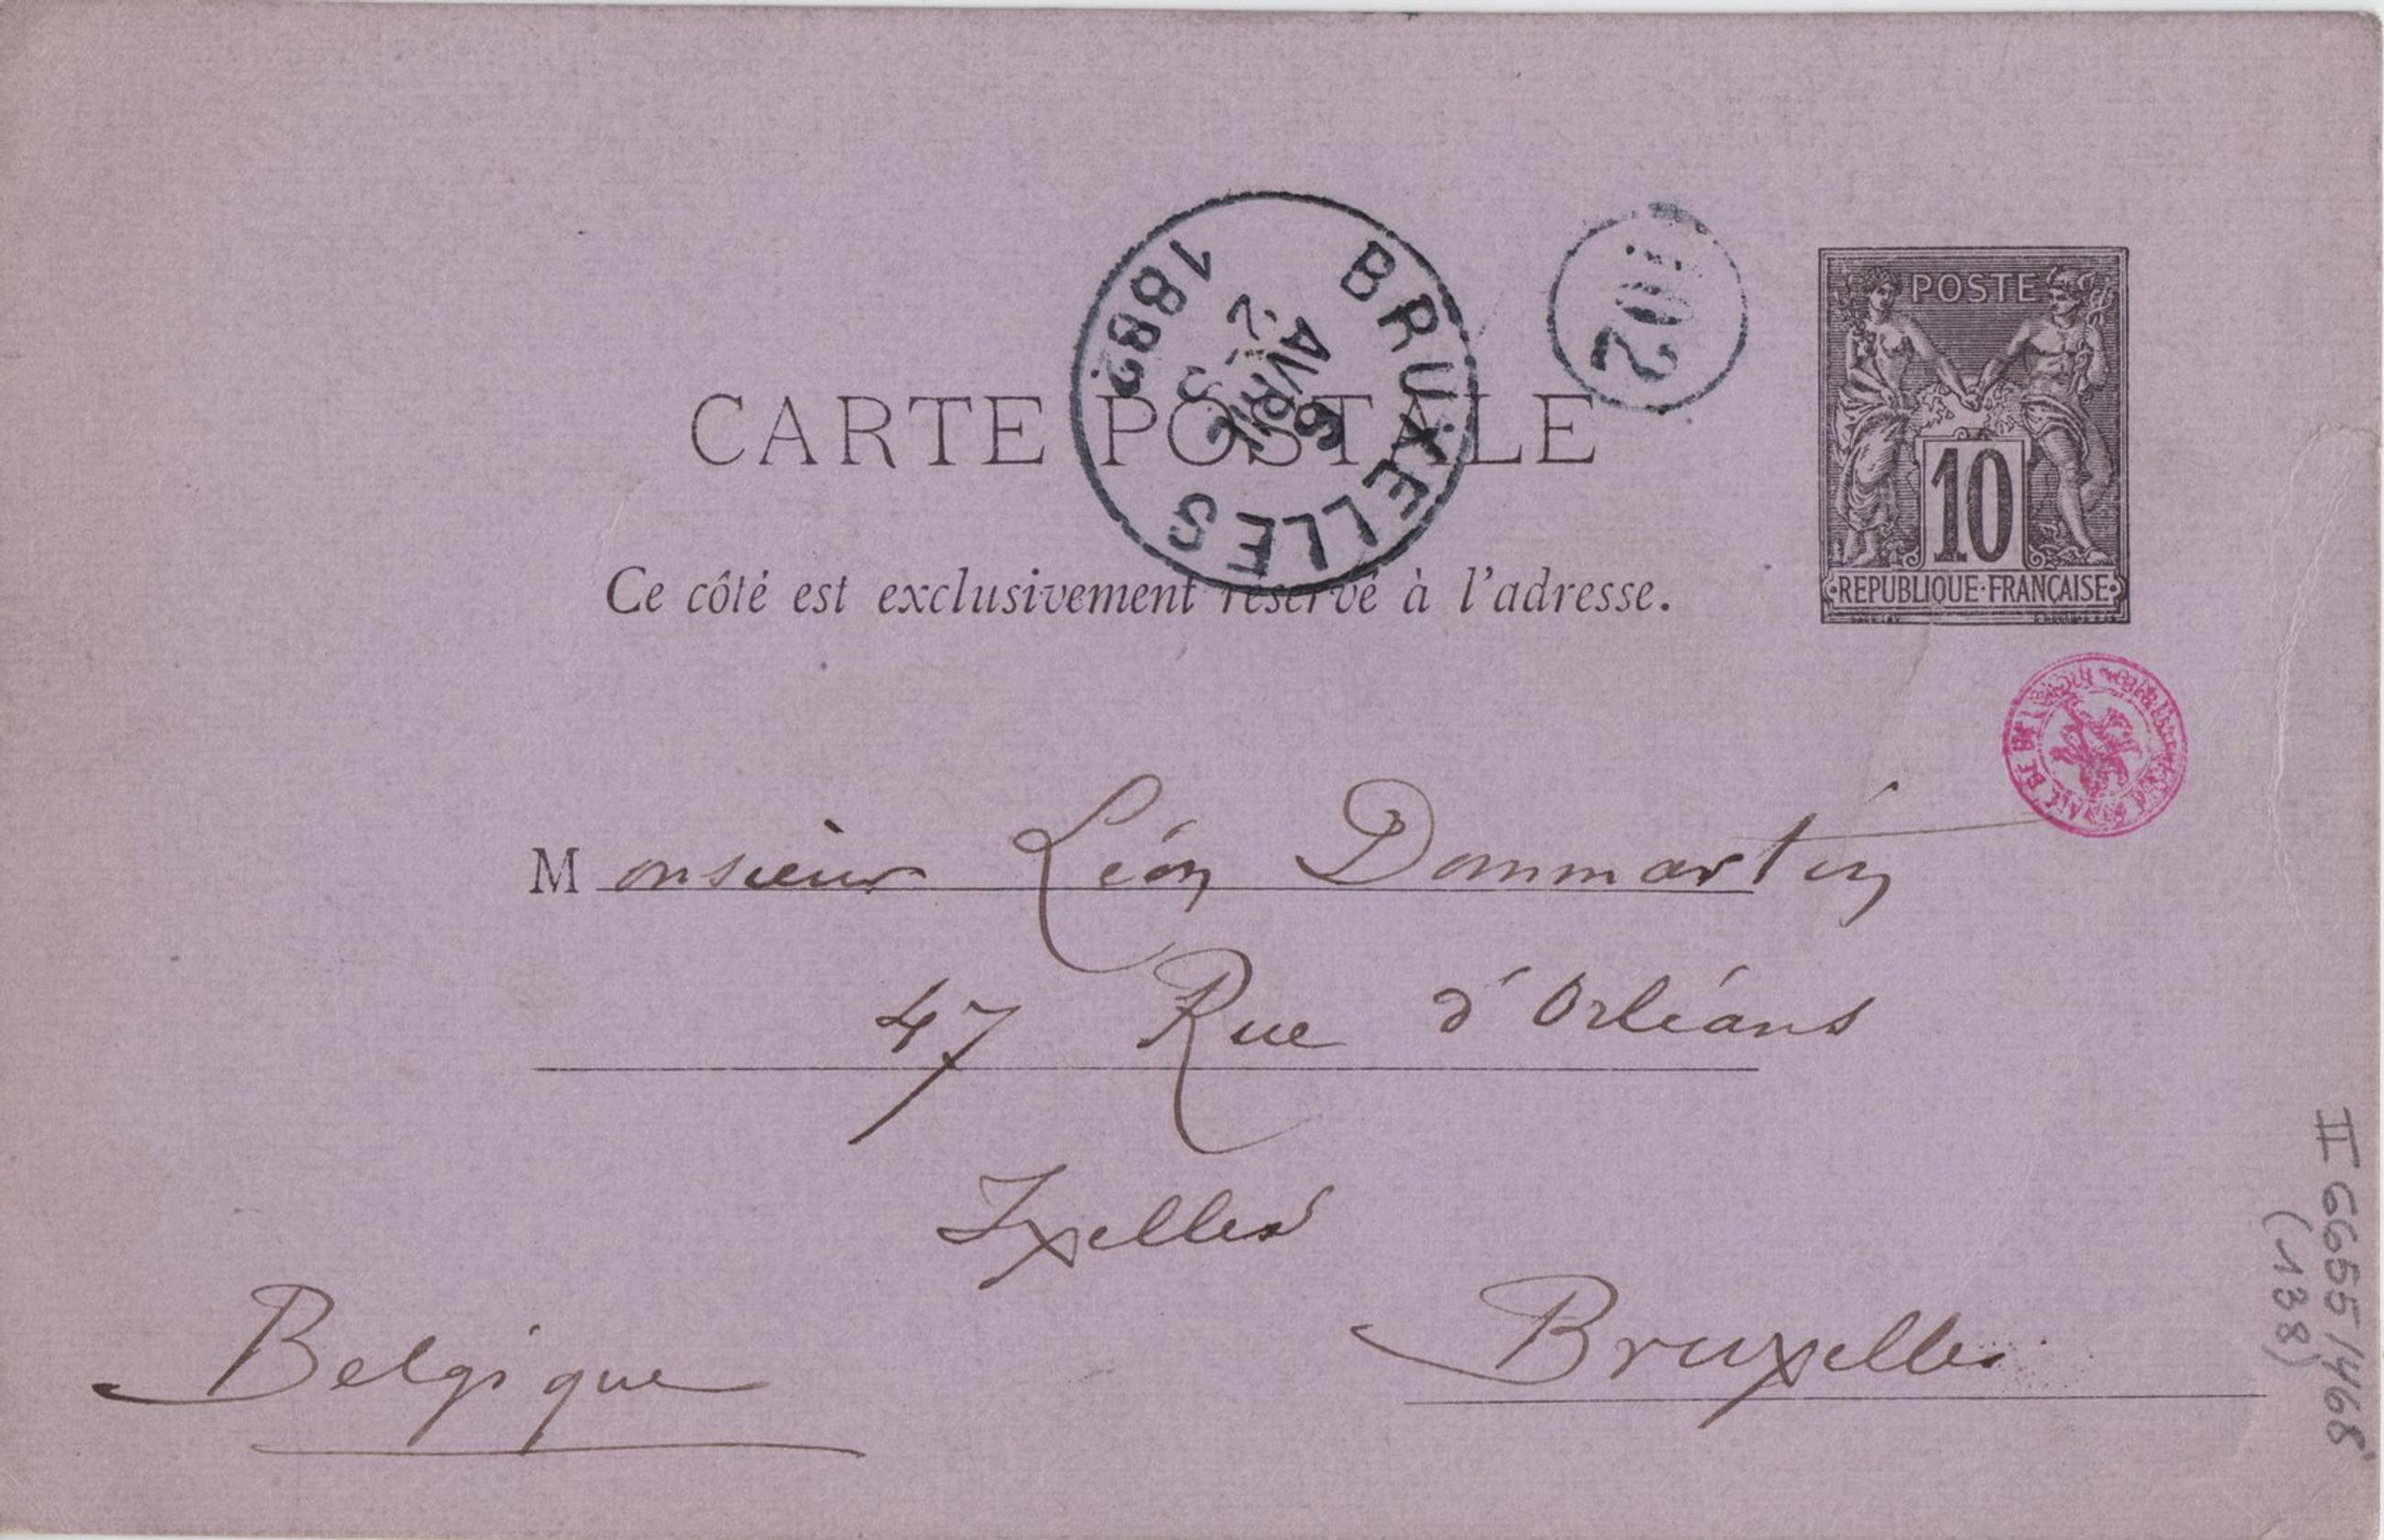 POSTE
10
REPUBLIQUE·FRANÇAISE
BRUXELLES
6
AVRIL
1882
CARTE POSTALE
Ce côté est exclusivement réservé à l'adresse.
Monsieur Léon Dommartin
47 Rue d'Orléans
Ixelles
Bruxelles
Belgique
II 6655/468
(138)